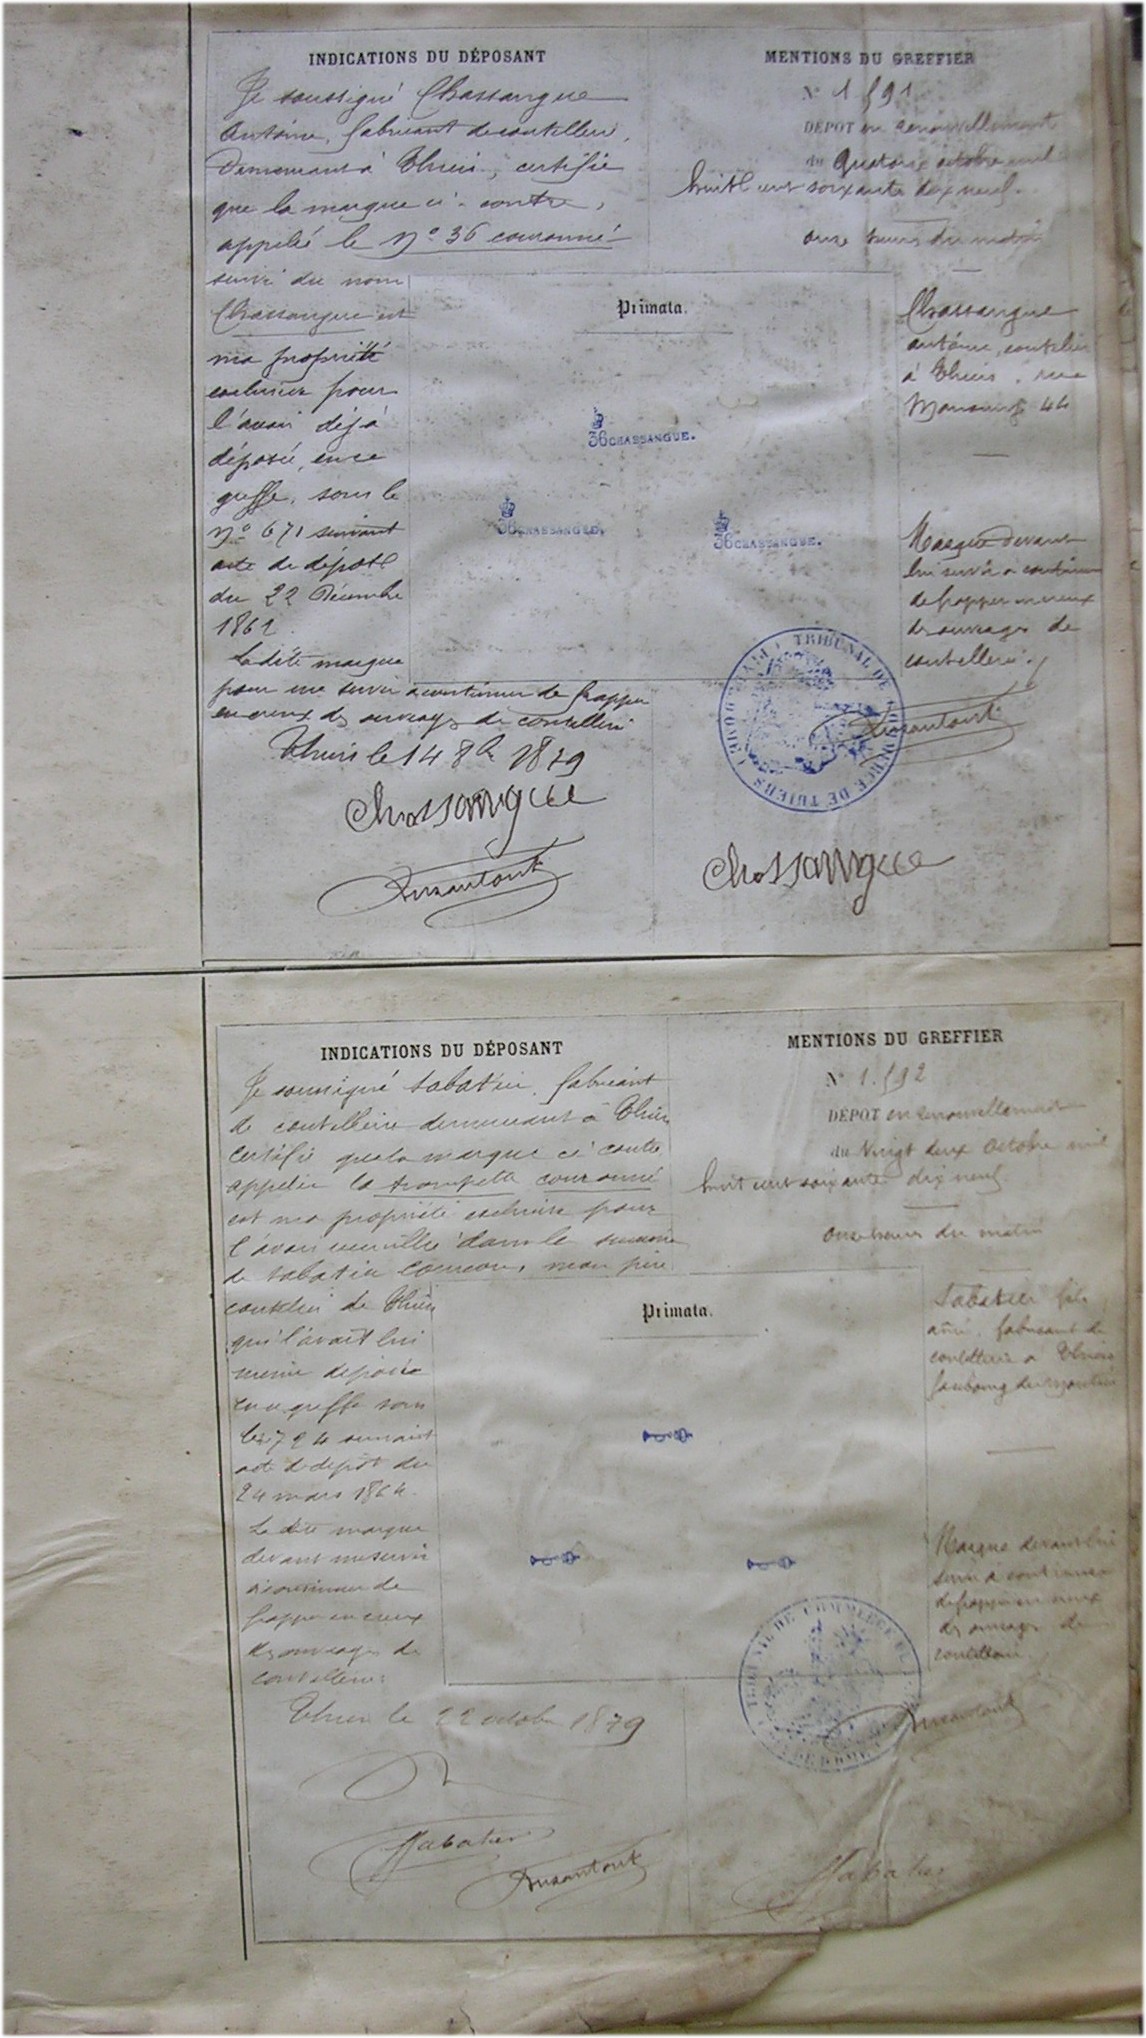 INDICATIONS DU DÉPOSANT
Je soussigné Chassangue
Antoine, fabricant de coutellerie,
Demeurant à Thiers, certifie
que la marque ci-contre,
appelée le N° 36 couronné
suivi du nom
Chassangue est
ma propriété
exclusive pour
l'avoir déjà
déposée, en ce
greffe, sous le
N° 671 suivant
acte de dépôt
du 22 Décembre
1861
La dite marque
pour me servir à continuer de frapper
en creux des ouvrages de coutellerie
Thiers le 14 8bre 1879
Chassangue
MENTIONS DU GREFFIER
N° 1591
DÉPOT en renouvellement
du Quatorze octobre mil
huit cent soixante dix neuf.
onze heures du matin
Primata.
36 CHASSANGUE.
36 CHASSANGUE.
36 CHASSANGUE.
Chassangue
antoine, coutelier
à Thiers, rue
44
Marque devant
lui servir à continuer
de frapper en creux
des ouvrages de
coutellerie.
TRIBUNAL DE COMMERCE DE THIERS
Chassangue
INDICATIONS DU DÉPOSANT
Je soussigné Sabatier, fabricant
de coutellerie demeurant à Thiers
certifie que la marque ci contre
appelée la trompette couronné
est ma propriété exclusive pour
l'avoir recueillie dans la
de Sabatier mon père
coutelier de Thiers
qui l'avait lui
même déposée
au greffe sous
le 794 suivant
acte de dépôt du
24 mars 1864.
La dite marque
devant me servir
à continuer de
frapper en creux
des ouvrages de
coutellerie
Thiers le 22 octobre 1879
Sabatier
MENTIONS DU GREFFIER
N° 1.592
DÉPOT en renouvellement
du Vingt deux octobre mil
huit cent soixante dix neuf.
onze heures du matin
Primata.
Sabatier fils
aîné, fabricant de
coutellerie à Thiers
faubourg du Moutier
Marque devant lui
servir à continuer
de frapper en creux
des ouvrages de
coutellerie.
TRIBUNAL DE COMMERCE DE
Sabatier